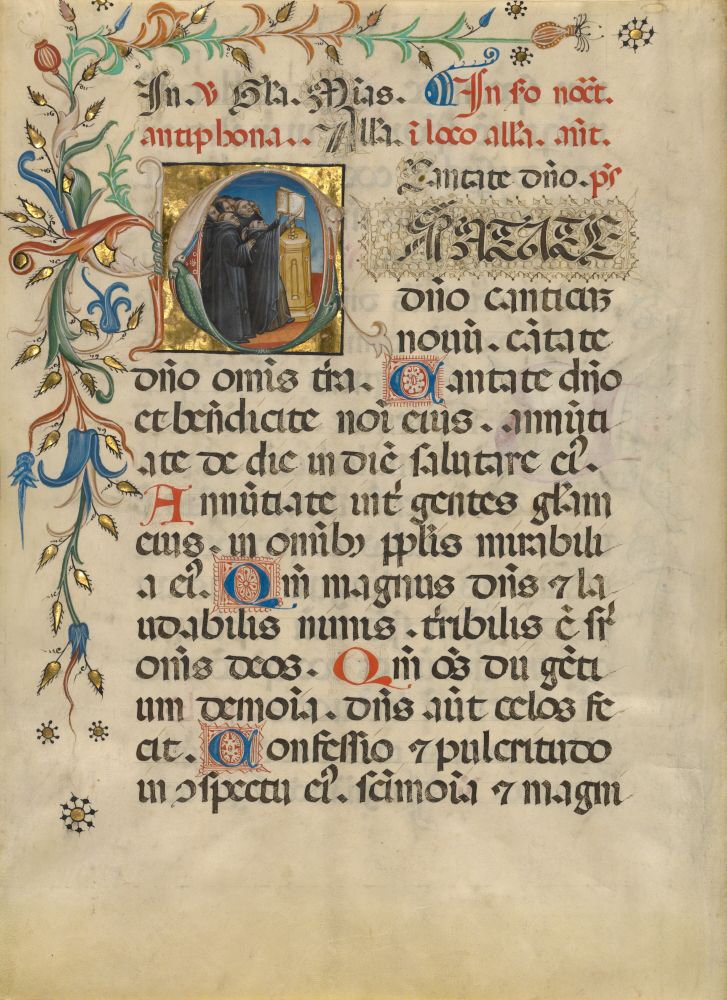 In. v Gła. Mīas. In ſo noct̄.
antiphona.. Alła. ī loco ałła. añt.
Cantate dño. pś
CANTATE
dño canticuʒ
nouū. cātate
dño omīs tr̄a. Cantate dño
et ben̄dicite noī eius. annūti
ate de die in diē ſalutare ei᾽.
Annūtiate int̄ gentes gła̅m
eius. in omībꝫ ppl̄is mirabili
a ei᾽. Qm̄ magnus dn̄s ⁊ la
udabilis nimis. tr̄ribilis ē ſr̄
om̄s deos. Qm̄ oēs dii gēti
um demoīa. dn̄s aūt celos fe
cit. Confeſſio ⁊ pulcritudo
in ɔſpectu ei᾽. ſcīmoīa ⁊ magni